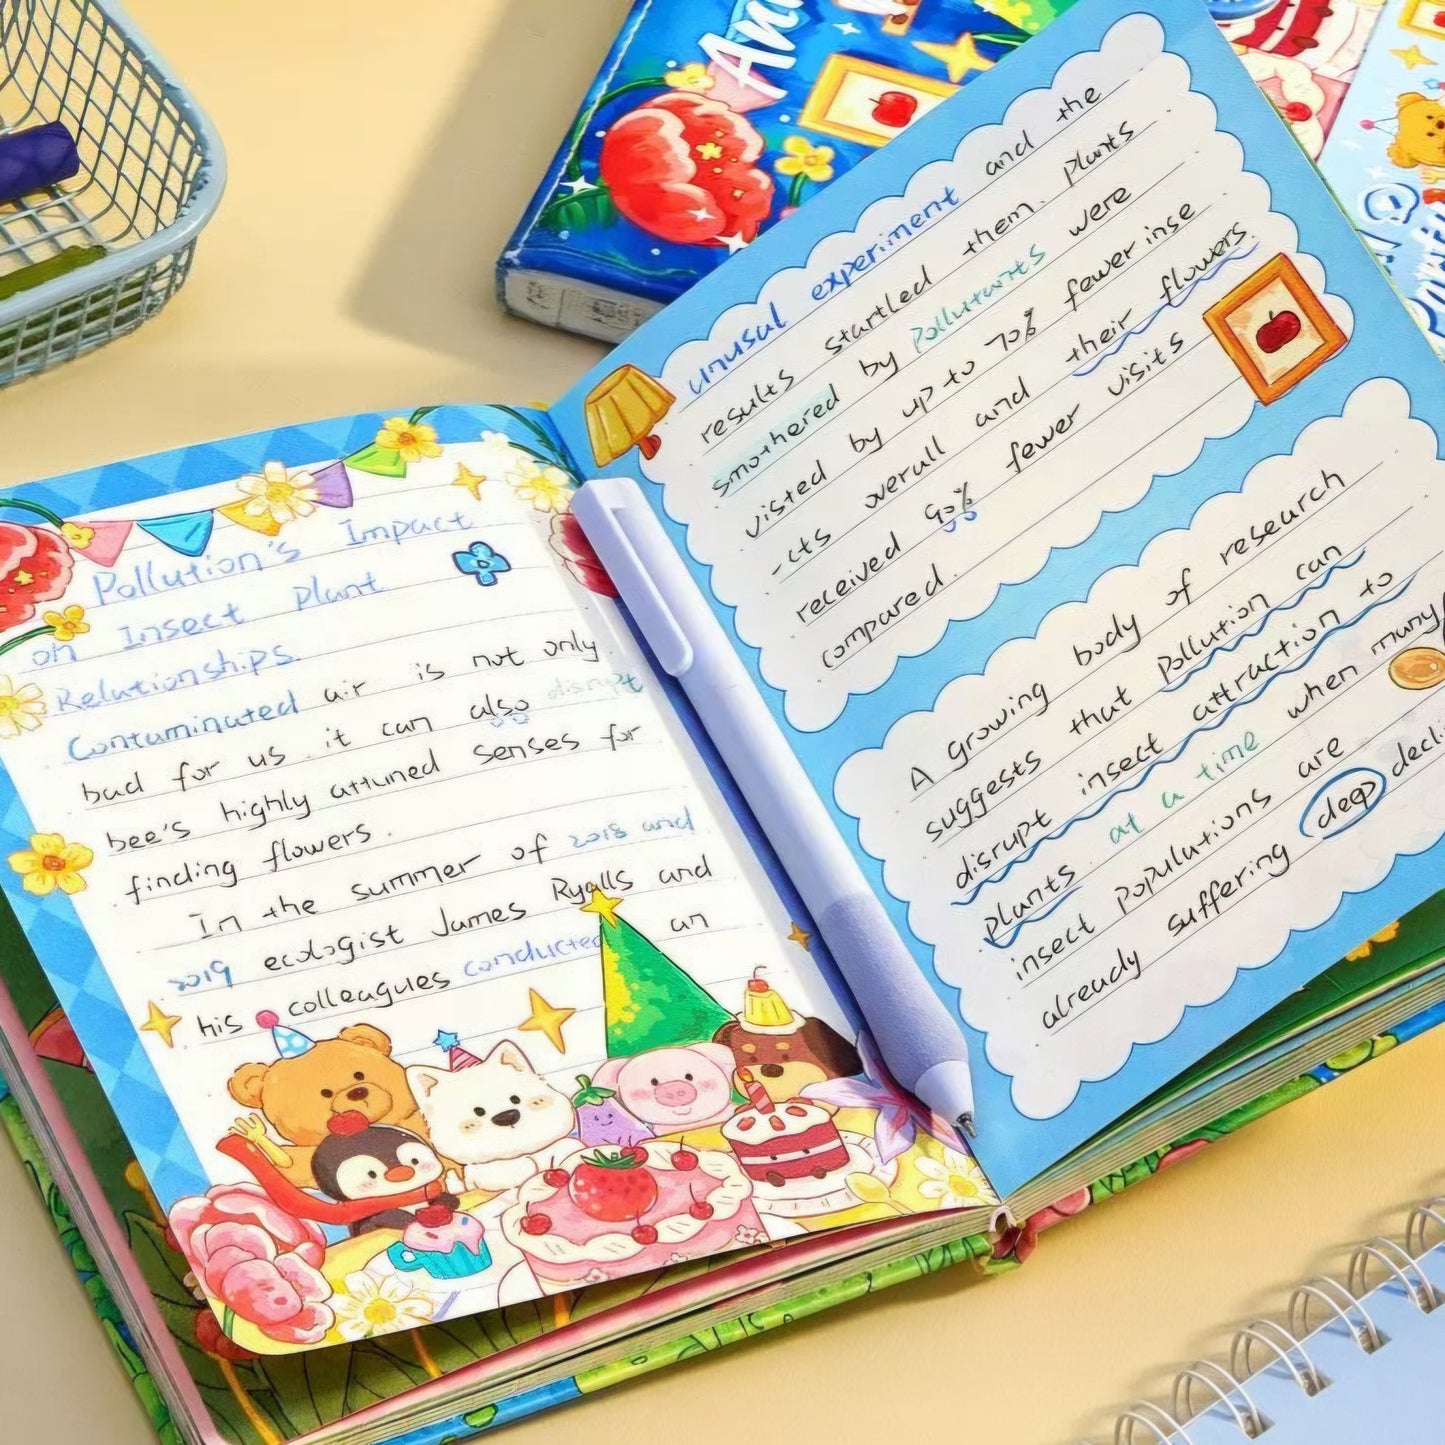 Pollution's Impact
on Insect Plant
Relationships.
Contaminated air is not only
bad for us. it can also disrupt
bee's highly attuned senses for
finding flowers.
In the summer of 2018 and
2019 ecologist James Ryalls and
his colleagues conducted an
unusal experiment and the
results startled them. plants
smothered by Pollutants were
visted by up to 70% fewer inse
-cts overall and their flowers.
received 90% fewer visits
compared.
A Growing body of research
suggests that pollution can
disrupt insect attraction to
plants at a time when many
insect populations are
already suffering deep decli